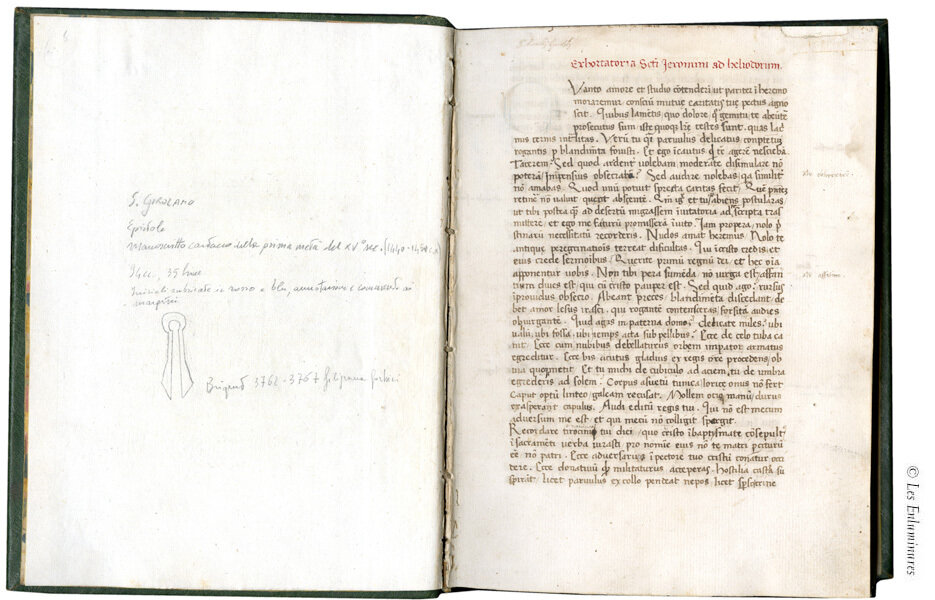 S. Girolamo
Epistole
manoscritto cartaceo della prima metà del XV° sec. (1440-1450 c.a)
74 cc, 35 linee
Iniziali rubricate in rosso e blu, annotazioni e commenti ai
margini
Briquet 3762-3767 filigrana forbici
Exhortatoria Scti Jeronimi ad heliodorum.
Vanto amore et studio cōtenderī ut pariter ī heremo
moraremur consciū mutue caritatis tue pectus agno
scit. Quibus lamētis, quo dolore, q̄ gemitu te abeūtē
prosecutus sum iste quoq; lr̄e testes sunt. quas lac
mis cernis int̄litas. Verū tu q̄i parvulus delicatus conptētū
rogantis p blandimta fovisti. Et ego īcautus qd̄ tē agerē nesciebā.
Tacerem? Sed quod ardent̄ volebam moderate disimulare nō
poterā. Impensius obsecrarē? Sed audire nolebas, qa similit̄
nō amabas. Quod unū potuit spreta caritas fecit. Quē pn̄tē
retinē nō valuit querit absentē.
ut tibi postea q̄ ad desertū migrassem īvitatoria ad scripta trās
mitterē, et ego me facturū promisserā īvito. Iam propera, nolo p
stinarū necessitatū recorderis. Nudos amat heremus. Nolo te
antique peregrinatiōis terreat dificultas. Qui ī cristo credis et
eius crede sermoībus. Querite primū regnū dei, et hec oīa
apponentur vobis. Non tibi pera sumēda, nō virga est. affati
tium dives est, qui cū cristo pauper est. Sed quid ago? rursus
īprovidus obsecro. Abeant preces, blandimēta discedant, de
bet amor lesus irasci. qui rogantē contenseras forsitā audies
obiurgantē. Quid agis ī paterna domo? delicate miles? ubi
valū, ubi fossa, ubi yemps acta sub pellibus? Ecce de celo tuba ca
nit. Ecce cum nubibus debellaturus orbem impator armatus
egreditur. Ecce bis acutus gladius ex regis ore procedens, ob
via queq; metit. Et tu michi de cubiculo ad aciem, tu de umbra
egrederis ad solem? Corpus asuetū tunica, lorice onus nō fert
Caput optū linteo galeam recusat. Mollem ocio manū, durus
exasperant capulus. Audi edictū regis tui. Qui nō est mecum
adversum me est, et qui mecū nō colligit spergit.
Recordare tirocinii tui diei, quo cristo ī baptismate cōsepult̄
ī sacramēti verba iurasti, pro nomīe eius nō te matri pciturū
eē nō patri. Ecce adversarius ī pectore tuo cristū conatur occi
dere. Ecce donativū qd̄ militaturus acceperas, hostilia castra su
spirāt. licet parvulus ex collo pendeat nepos, licet
© Les Enluminures